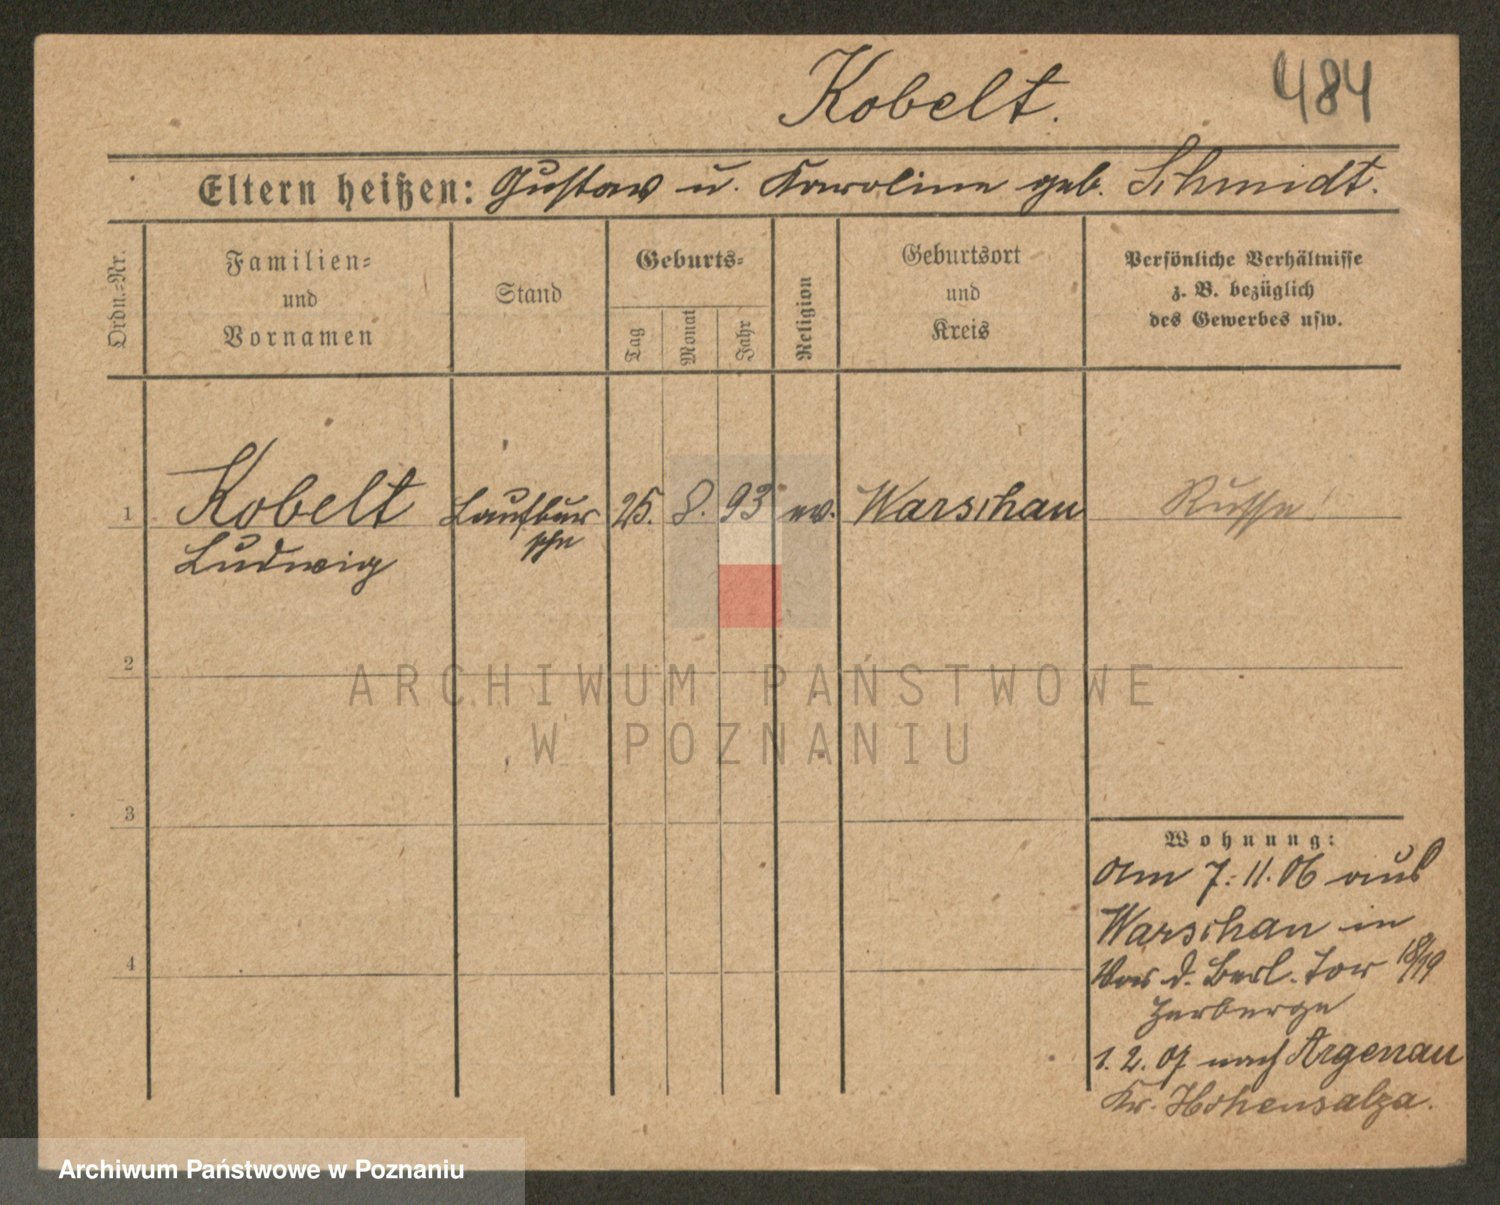 Kobelt.
484
Eltern heißen: Gustav u. Karoline geb. Schmidt.
Ordn.-Nr.
Familien-
und
Vornamen
Stand
Geburts-
Tag
Monat
Jahr
Religion
Geburtsort
und
Kreis
Persönliche Verhältnisse
z. B. bezüglich
des Gewerbes usw.
1
Kobelt
Ludwig
Laufbur
sche
25.
8.
93
ev.
Warschau
Russe!
2
3
4
Wohnung:
Am 7. 11. 06 aus
Warschau in
Vor d. Berl. Tor 18/19
Herberge
1. 2. 07 nach Argenau
Kr. Hohensalza.
ARCHIWUM PAŃSTWOWE
W POZNANIU
Archiwum Państwowe w Poznaniu